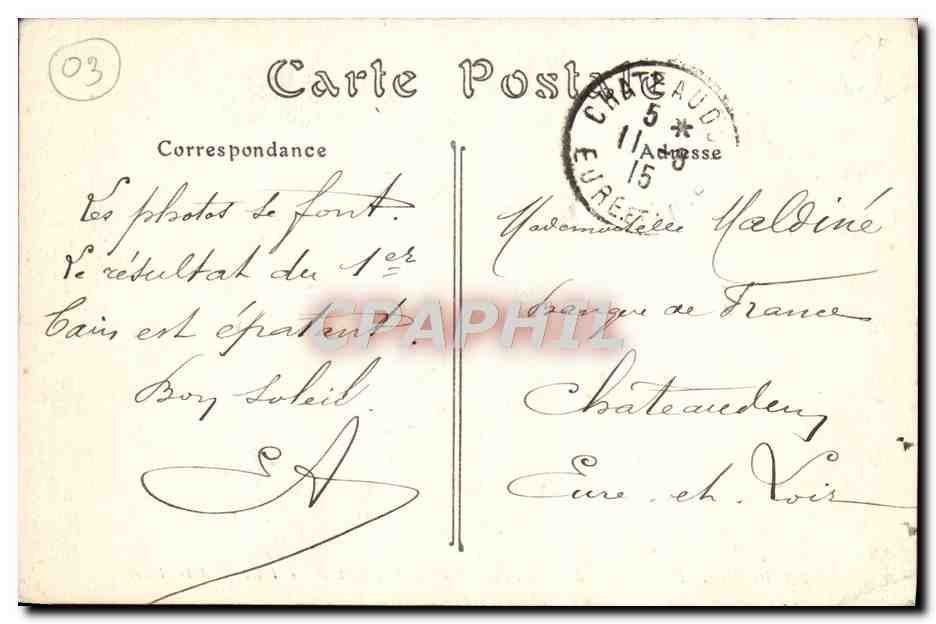 03
Carte Postale
CHATEAUD
5 *
11 - 8
15
EURE-ET
Correspondance
Adresse
Les photos se font.
Le résultat du 1er
bain est épatant.
Bon soleil.
EA
Mademoiselle Maldiné
Banque de France
Chateaudun
Eure-et-Loir
CPAPHIL